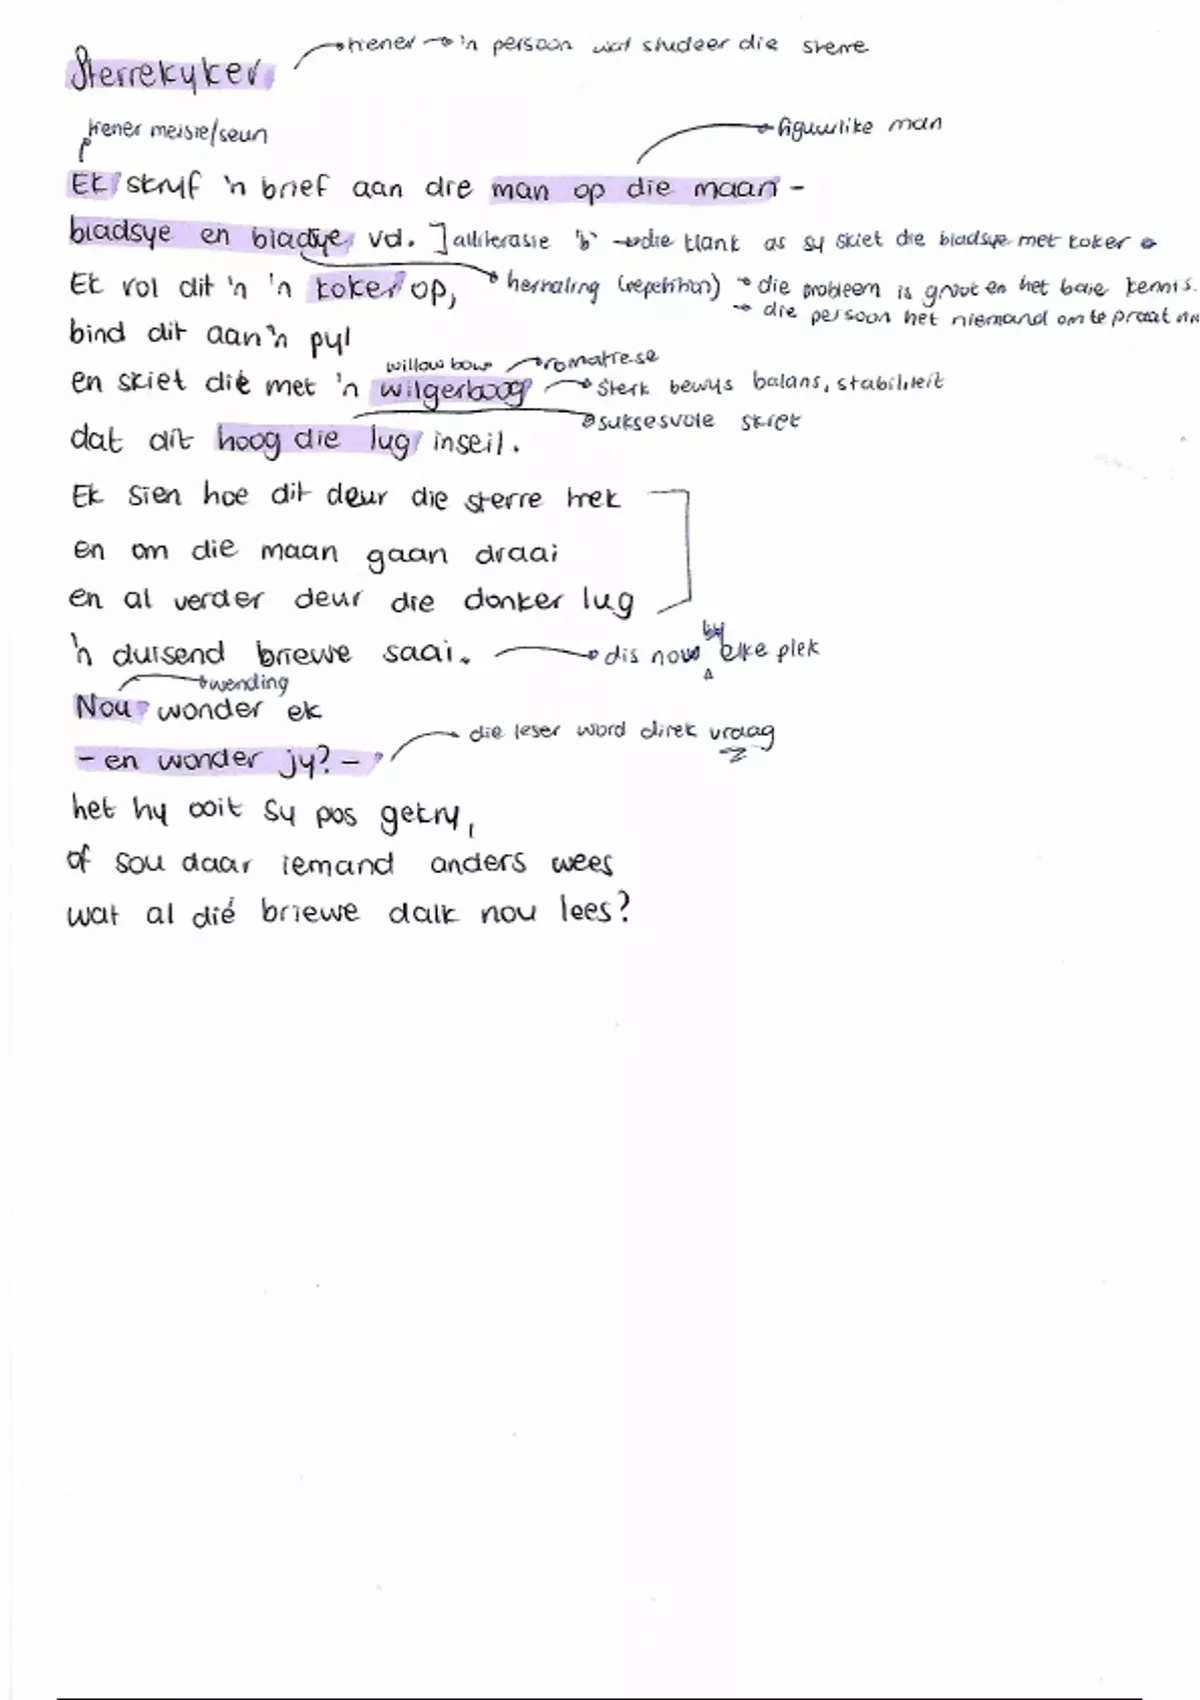 tiener → 'n persoon wat studeer die sterre
Sterrekyker
tiener meisie/seun
figuurlike man
Ek skryf 'n brief aan die man op die maan -
bladsye en bladsye vol. ] alliterasie 'b' → die klank as sy skiet die bladsye met koker
Ek rol dit 'n 'n koker op,
herhaling (repetition) → die probleem is groot en het baie kennis.
→ die persoon het niemand om te praat
bind dit aan 'n pyl
willow bow → romatiese
en skiet dié met 'n wilgerboog → sterk bewys balans, stabiliteit
suksesvole skiet
dat dit hoog die lug inseil.
Ek sien hoe dit deur die sterre trek
en om die maan gaan draai
en al verder deur die donker lug
by
'n duisend briewe saai. → dis nou elke plek
wending
Nou wonder ek
die leser word direk vraag
- en wonder jy? -
het hy ooit sy pos gekry,
of sou daar iemand anders wees
wat al dié briewe dalk nou lees?